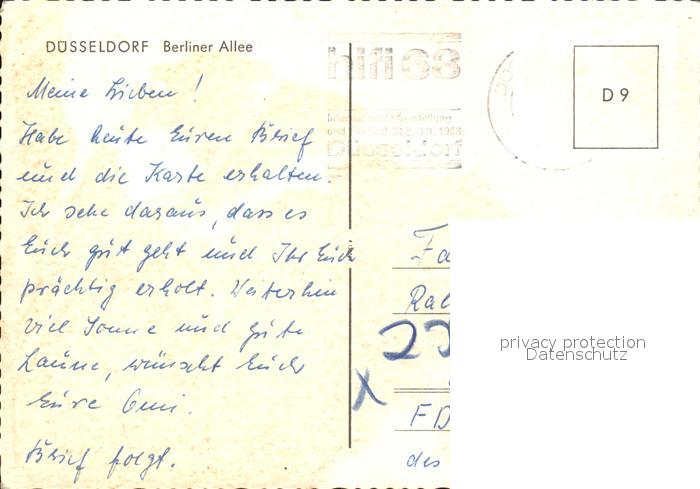 DÜSSELDORF Berliner Allee
hifi 68
Internationale Ausstellung
und Festival 30.8.-3.9. 1968
Düsseldorf
D 9
Meine Lieben!
Habe heute Euren Brief
und die Karte erhalten.
Ich sehe daraus, dass es
Euch gut geht und Ihr Euch
prächtig erholt. Weiterhin
viel Sonne und gute
Laune, wünscht Euch
Eure Omi.
Brief folgt.
Fa
Ral
22
X
FD
des
privacy protection
Datenschutz